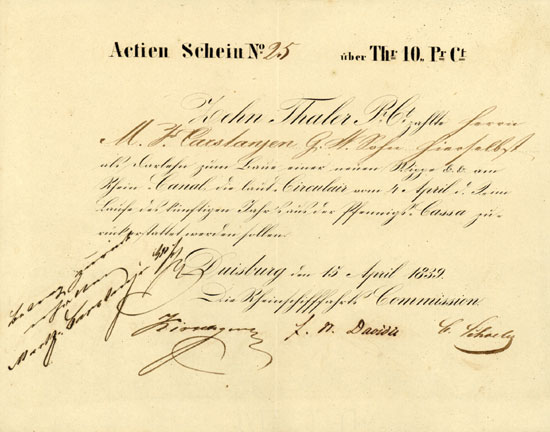 Actien Schein No 25 über Thr 10,, Pr Ct
Zehn Thaler Pr. Ct. zahlte Herrn
M. Fr. Carstanjen G. W. Sohn hierselbst,
als Darlehn zum Baue einer neuen &c. &c. am
Rhein-Canal die laut Circulair vom 4 April d. J. im
Laufe des künftigen Jahrs aus der Pfennigs-Cassa zu-
rückerstattet werden sollen.
Duisburg den 15 April 1839
Die Rheinschifffahrts Commission.
J. H. Davidis